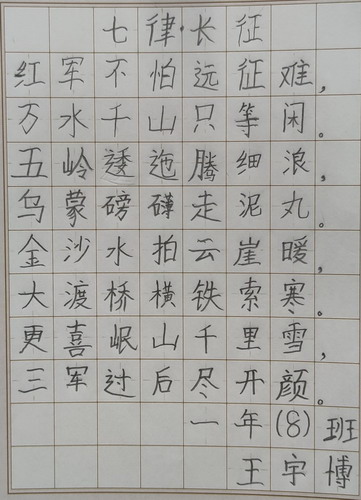 七律·长征
红军不怕远征难，
万水千山只等闲。
五岭逶迤腾细浪，
乌蒙磅礴走泥丸。
金沙水拍云崖暖，
大渡桥横铁索寒。
更喜岷山千里雪，
三军过后尽开颜。
一年(8)班
王宇博